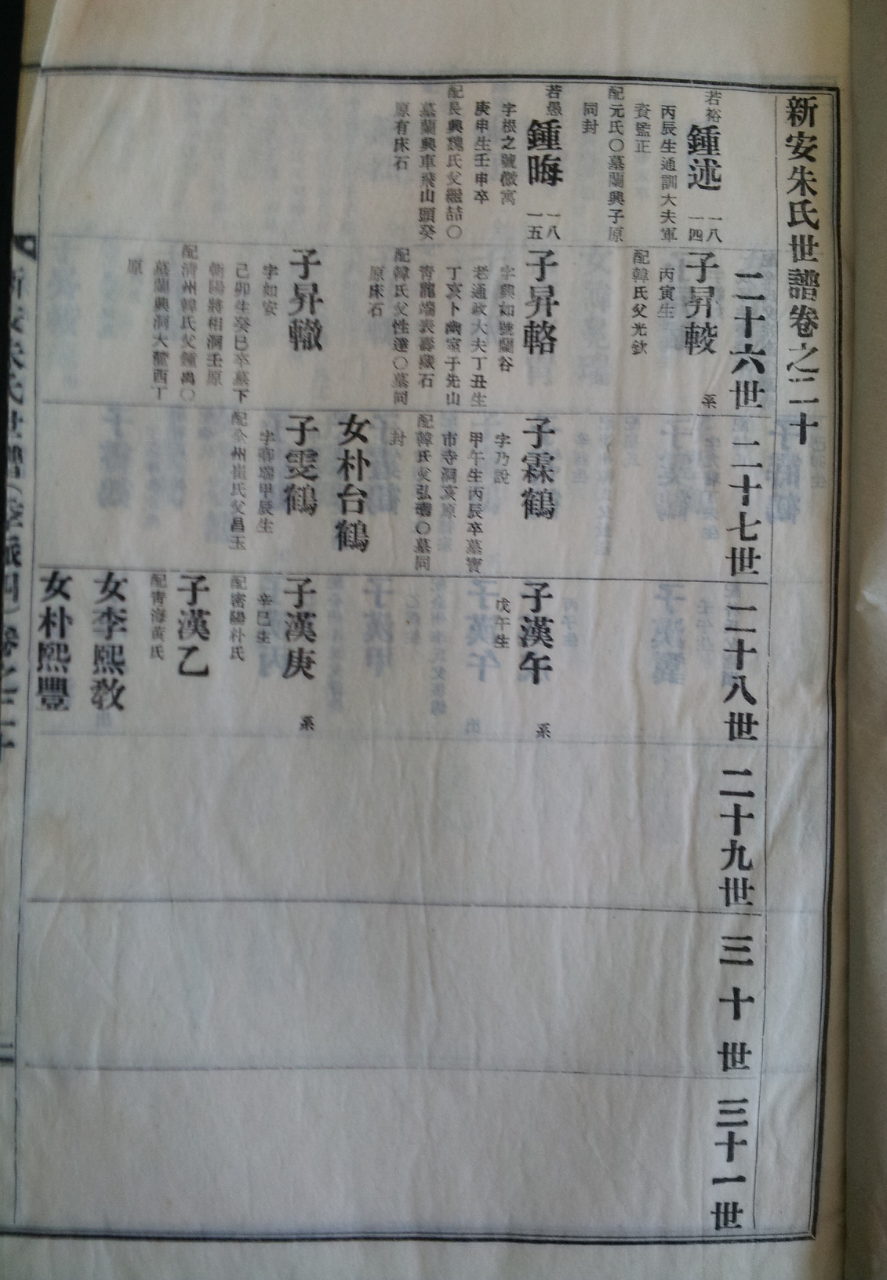 新安朱氏世譜卷之二十
二十六世
二十七世
二十八世
二十九世
三十世
三十一世
若裕
鍾述
一八
一四
丙辰生通訓大夫軍
資監正
配元氏○墓蘭興子原
同封
若愚
鍾晦
一八
一五
字根之號儆寓
庚申生壬申卒
配長興魏氏父繼喆○
墓蘭興車飛山頭癸
原有床石
子昇較
系
丙寅生
配韓氏父光欽
子昇輅
字興如號蘭谷
老通政大夫丁丑生
丁亥卜幽室于先山
青龍端表壽藏石
配韓氏父性達○墓同
原床石
子昇轍
字如安
己卯生癸巳卒墓下
朝陽將相洞壬原
配清州韓氏父鍾禼○
墓蘭興洞大蟹酉丁
原
子霖鶴
字乃說
甲午生丙辰卒墓寶
市寺洞亥原
配韓氏父弘瓚○墓同
封
女朴台鶴
子雯鶴
甲辰生
配全州崔氏父昌玉
子漢午
系
戊午生
子漢庚
系
辛巳生
配密陽朴氏
子漢乙
配青海黃氏
女李熙敎
女朴熙豐